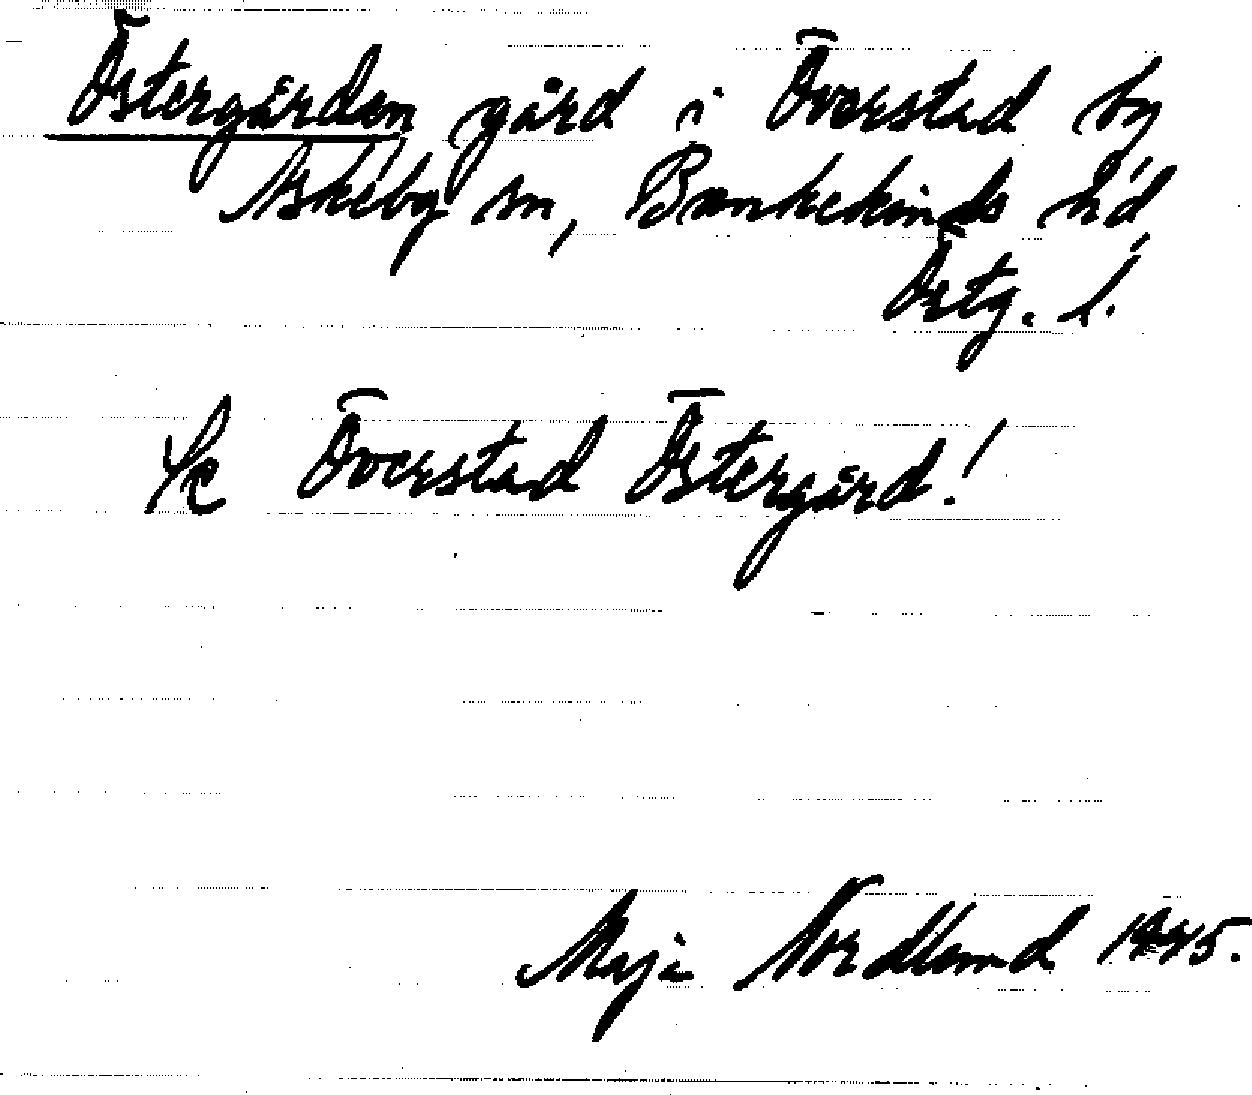 Östergården gård i Överstad by
Askeby sn, Bankekinds hd
Östg. l.
Se Överstad Östergård!
Maja Nordlund 1945.